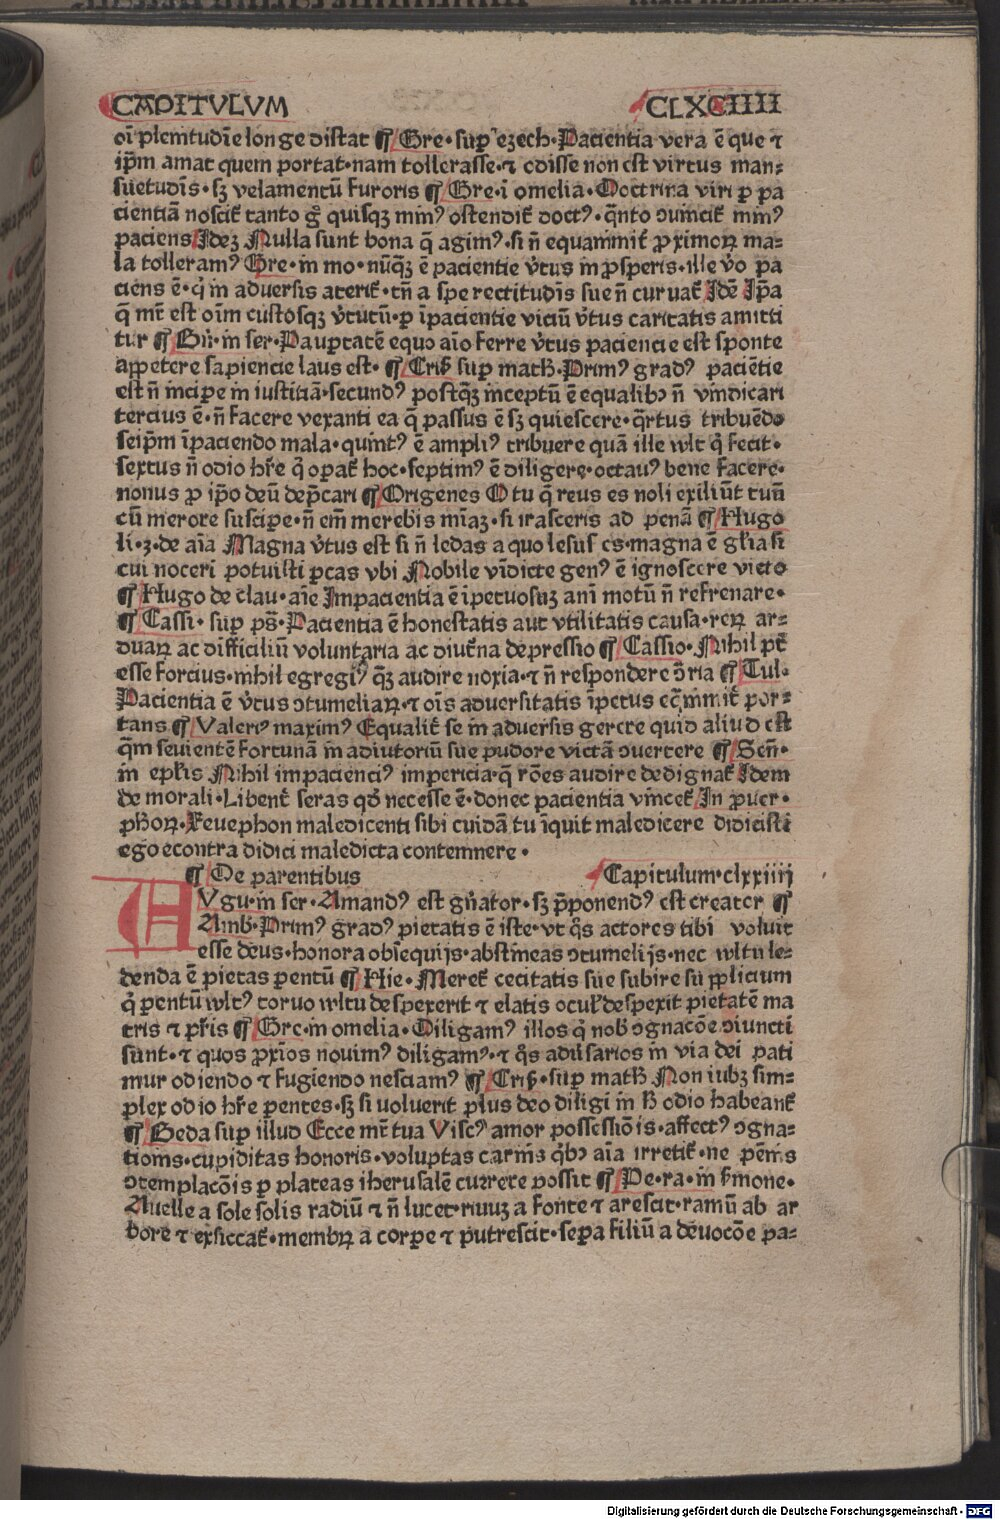 CAPITVLVM CLXCIIII
oī plenitudīe longe distat ¶ Gre· sup̄ ezech· Paciencia vera ē que ⁊
ip̄m amat quem portat· nam tollerasse· ⁊ odisse non est virtus man⸗
suetudīs· sꝫ velamentū furoris ¶ Gre· ī omelia· Doctrina viri ꝑ pa
cientiā noscit᷑ tanto g̊ quisqꝫ minꝰ ostendit᷑ doctꝰ· q̄nto ꝯuincit᷑ minꝰ
paciens Ideꝫ Nulla sunt bona q̄ agimꝰ· si n̄ equanimit᷑ ꝓximoꝝ ma⸗
la tolleramꝰ Gre· in mo· nūq̄ꝫ ē pacientie v̄tus in ꝓsperis· ille v̄o pa
ciens ē· q̇ in aduersis aterit᷑· tn̄ a spe rectitudīs sue n̄ curuat᷑ Idē Ip̄a
q̄ mr̄ est oīm custosqꝫ v̄tutū· ꝑ īpacientie viciū v̄tus caritatis amitti
tur ¶ B̄n· in ser· Paup̄tatē equo aīo ferre v̄tus paciencie est sponte
appetere sapiencie laus est· ¶ Cris̄ sup̄ math̄· Primꝰ gradꝰ paciētie
est n̄ incipe in iustitiā· secundꝰ postq̄ꝫ inceptū ē equalibꝫ n̄ vindicari
tercius ē· n̄ facere vexanti ea q̄ passus ē sꝫ quiescere· q̄rtus tribuēdo
seip̄m īpaciendo mala· quintꝰ ē ampliꝰ tribuere quā ille wlt q̇ fecit·
sextus n̄ odio hr̄e q̇ opat᷑ hoc· septimꝰ ē diligere· octauꝰ bene facere·
nonus ꝓ ip̄o deū dep̄cari ¶ Origenes O tu q̇ reus es noli exiliūt tuū
cū merore suscipe· n̄ em̄ merebis mīaꝫ· si irasceris ad penā ¶ Hugo
li· 3· de aīa Magna v̄tus est si n̄ ledas a quo lesus es· magna ē gl̄ia si
cui noceri potuisti ꝑcas vbi Nobile vīdicte genꝰ ē ignoscere victo
¶ Hugo de clau· aīe Impacientia ē īpetuosuꝫ ani motū n̄ refrenare·
¶ Cassi· sup̄ ps̄· Pacientia ē honestatis aut vtilitatis causa· reꝝ ar⸗
duaꝝ ac difficiliū voluntaria ac diut᷑na depressio ¶ Cassio· Nihil pt̄
esse forcius· nihil egregiꝰ q̄ꝫ audire noxia· ⁊ n̄ respondere ꝯ̄ria ¶ Tul·
Pacientia ē v̄tus ꝯtumeliaꝝ· ⁊ oīs aduersitatis īpetus eq̄nimit᷑ por⸗
tans ¶ Valeriꝰ maximꝰ Equalit᷑ se in aduersis gerere quid aliud est
q̄m seuientē fortunā in adiutoriū sue pudore victā ꝯuertere ¶ Sen̄·
in epl̄is Nihil impacienciꝰ impericia· q̄ rōes audire dedignat᷑ Idem
de morali· Libent᷑ feras qd̄ necesse ē· donec pacientia vincet᷑ In ꝓuer·
ph̄oꝝ· Xeuephon maledicenti sibi cuidā tu īquit maledicere didicisti
ego econtra didici maledicta contemnere·
¶ De parentibus Capitulum· clxxiiij
AVgu· in ser· Amandꝰ est gn̄ator· sꝫ p̄ponendꝰ est creator ¶
Amb̄· Primꝰ gradꝰ pietatis ē iste· vt q̄s actores tibi voluit
esse deus· honora obseq̄uijs· abstineas ꝯtumelijs· nec wltu le⸗
denda ē pietas pentū ¶ Hie· Meret᷑ cecitatis sue subire sū pplicium
q̇ pentū wltꝰ toruo wltu despexerit ⁊ elatis ocul̄ despexit pietatē ma
tris ⁊ pr̄is ¶ Gre· in omelia· Diligamꝰ illos q̇ nob̄ ꝯgnacōe ꝯiuncti
sunt· ⁊ quos ꝓxīos nouimꝰ diligamꝰ· ⁊ q̄s adu̇sarios in via dei pati
mur odiendo ⁊ fugiendo nesciamꝰ ¶ Cris̄· sup̄ math̄ Non iubꝫ sim⸗
plex odio hr̄e pentes· sꝫ si voluerit plus deo diligi in h̄ odio habeant᷑
¶ Beda sup̄ illud Ecce mr̄ tua Viscꝰ amor possessiōis· affectꝰ ꝯgna⸗
tionis· cupiditas honoris· voluptas carnis q̇bꝫ aīa irretit᷑· ne penīs
ꝯtemplacōis ꝑ plateas iherusalē currere possit ¶ Pe· ra· in s̄mone·
Auelle a sole solis radiū ⁊ n̄ lucet· riuuꝫ a fonte ⁊ arescit· ramū ab ar
bore ⁊ exsiccat᷑· membꝝ a corpe ⁊ putrescit· sepa filiū a deuocōe pa⸗
Digitalisierung gefördert durch die Deutsche Forschungsgemeinschaft · DFG